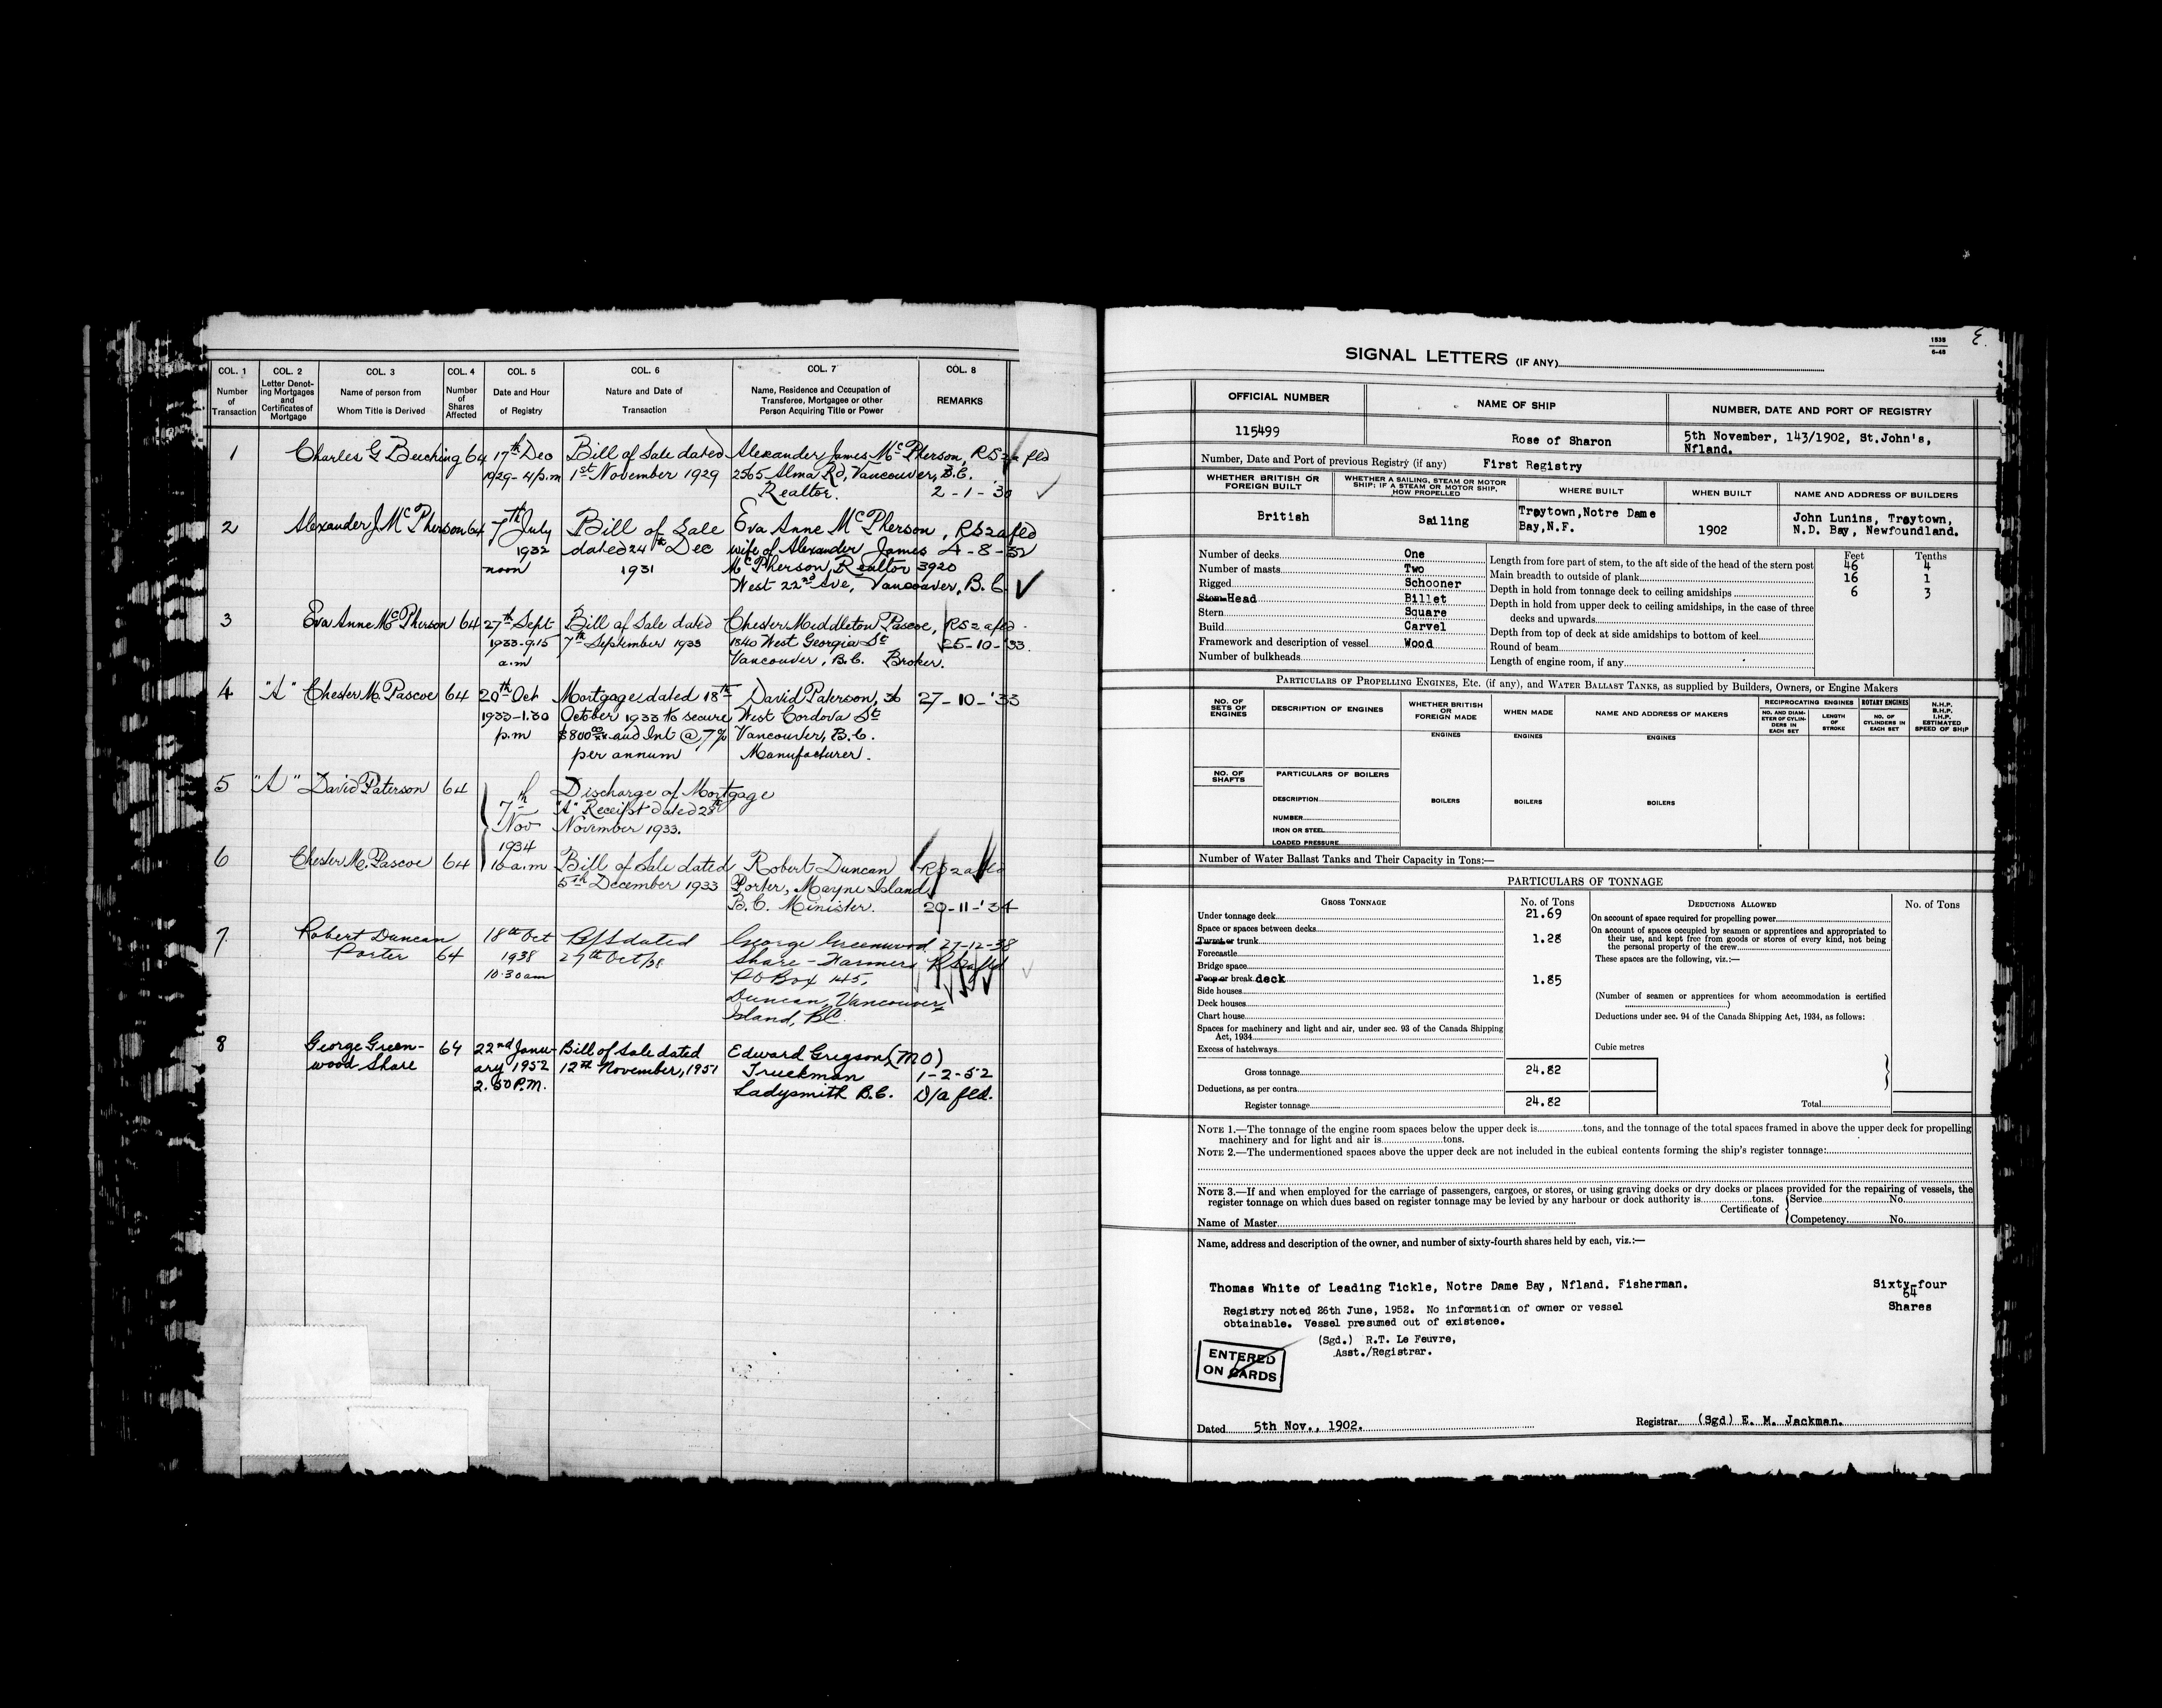 COL. 1 COL. 2 COL. 3 COL. 4 COL. 5 COL. 6 COL. 7 COL. 8
Number of Transaction
Letter Denoting Mortgages and Certificates of Mortgage
Name of person from Whom Title is Derived
Number of Shares Affected
Date and Hour of Registry
Nature and Date of Transaction
Name, Residence and Occupation of Transferee, Mortgagee or other Person Acquiring Title or Power
REMARKS
1 Charles G Beeching 64 17th Dec Bill of Sale dated Alexander James McPherson, RS2a fld
1929-4/p.m 1st November 1929 2565 Alma Rd, Vancouver, B.C.
Realtor. 2-1-30
2 Alexander J McPherson 64 7th July Bill of Sale Eva Anne McPherson, RS2afld
1932 dated 24th Dec wife of Alexander James 4-8-32
noon 1931 McPherson, Realtor 3920
West 22nd Ave, Vancouver, B.C
3 Eva Anne McPherson 64 27th Sept Bill of Sale dated Chester Middleton Pascoe, RS2afld.
1933-9.15 7th September 1933 1840 West Georgia St 25-10-'33.
a.m Vancouver, B.C. Broker.
4 "A" Chester M. Pascoe 64 20th Oct Mortgage dated 18th David Paterson, 36 27-10-'33
1933-1.30 October 1933 to secure West Cordova St
p.m $800 and Int @ 7% Vancouver, B.C.
per annum Manufacturer.
5 "A" David Paterson 64 Discharge of Mortgage
7th "A" Receipt dated 25th
Nov November 1933.
1934
6 Chester M. Pascoe 64 10 a.m Bill of Sale dated Robert Duncan RS2afld
5th December 1933 Porter, Mayne Island
B.C. Minister. 29-11-'34
7. Robert Duncan 18th Oct B/S dated George Greenwood 27-12-38
Porter 64 1938 27th Oct/38 Share - Farmer RS2afld
10.30am P O Box 145,
Duncan, Vancouver
Island, BC.
8 George Green- 64 22nd Janu- Bill of Sale dated Edward Gregson (M O)
wood Share ary 1952 12th November, 1951 Truckman 1-2-52
2.50 P.M. Ladysmith B.C. D/a fld.
1838
6-48
E.
SIGNAL LETTERS (IF ANY)
OFFICIAL NUMBER NAME OF SHIP NUMBER, DATE AND PORT OF REGISTRY
115499 Rose of Sharon 5th November, 143/1902, St.John's,
Nfland.
Number, Date and Port of previous Registry (if any) First Registry
WHETHER BRITISH OR FOREIGN BUILT
WHETHER A SAILING, STEAM OR MOTOR SHIP; IF A STEAM OR MOTOR SHIP, HOW PROPELLED
WHERE BUILT WHEN BUILT NAME AND ADDRESS OF BUILDERS
British Sailing Trøytown,Notre Dame Bay,N.F. 1902 John Lunins, Trøytown,
N.D. Bay, Newfoundland.
Number of decks One
Number of masts Two
Rigged Schooner
Stem Head Billet
Stern Square
Build Carvel
Framework and description of vessel Wood
Number of bulkheads
Feet Tenths
Length from fore part of stem, to the aft side of the head of the stern post 46 4
Main breadth to outside of plank 16 1
Depth in hold from tonnage deck to ceiling amidships 6 3
Depth in hold from upper deck to ceiling amidships, in the case of three
decks and upwards
Depth from top of deck at side amidships to bottom of keel
Round of beam
Length of engine room, if any
PARTICULARS OF PROPELLING ENGINES, ETC. (if any), and WATER BALLAST TANKS, as supplied by Builders, Owners, or Engine Makers
NO. OF SETS OF ENGINES
DESCRIPTION OF ENGINES
WHETHER BRITISH OR FOREIGN MADE
WHEN MADE
NAME AND ADDRESS OF MAKERS
RECIPROCATING ENGINES ROTARY ENGINES
NO. AND DIAMETER OF CYLINDERS IN EACH SET
LENGTH OF STROKE
NO. OF CYLINDERS IN EACH SET
N.H.P. B.H.P. I.H.P. ESTIMATED SPEED OF SHIP
ENGINES ENGINES ENGINES
NO. OF SHAFTS
PARTICULARS OF BOILERS
DESCRIPTION BOILERS BOILERS BOILERS
NUMBER
IRON OR STEEL
LOADED PRESSURE
Number of Water Ballast Tanks and Their Capacity in Tons:—
PARTICULARS OF TONNAGE
GROSS TONNAGE No. of Tons DEDUCTIONS ALLOWED No. of Tons
Under tonnage deck 21.69
Space or spaces between decks
Turret or trunk 1.28
Forecastle
Bridge space
Poop or break deck 1.85
Side houses
Deck houses
Chart house
Spaces for machinery and light and air, under sec. 93 of the Canada Shipping
Act, 1934
Excess of hatchways
Gross tonnage 24.82
Deductions, as per contra
Register tonnage 24.82
On account of space required for propelling power
On account of spaces occupied by seamen or apprentices and appropriated to
their use, and kept free from goods or stores of every kind, not being
the personal property of the crew
These spaces are the following, viz.:—
(Number of seamen or apprentices for whom accommodation is certified
)
Deductions under sec. 94 of the Canada Shipping Act, 1934, as follows:
Cubic metres
Total
NOTE 1.—The tonnage of the engine room spaces below the upper deck is tons, and the tonnage of the total spaces framed in above the upper deck for propelling
machinery and for light and air is tons.
NOTE 2.—The undermentioned spaces above the upper deck are not included in the cubical contents forming the ship's register tonnage:
NOTE 3.—If and when employed for the carriage of passengers, cargoes, or stores, or using graving docks or dry docks or places provided for the repairing of vessels, the
register tonnage on which dues based on register tonnage may be levied by any harbour or dock authority is tons.
Certificate of Service No.
Name of Master Competency No.
Name, address and description of the owner, and number of sixty-fourth shares held by each, viz.:—
Thomas White of Leading Tickle, Notre Dame Bay, Nfland. Fisherman. Sixty-four
64
Shares
Registry noted 26th June, 1952. No information of owner or vessel
obtainable. Vessel presumed out of existence.
(Sgd.) R.T. Le Feuvre,
Asst./Registrar.
ENTERED
ON CARDS
Dated 5th Nov., 1902. Registrar (Sgd) E. M. Jackman.